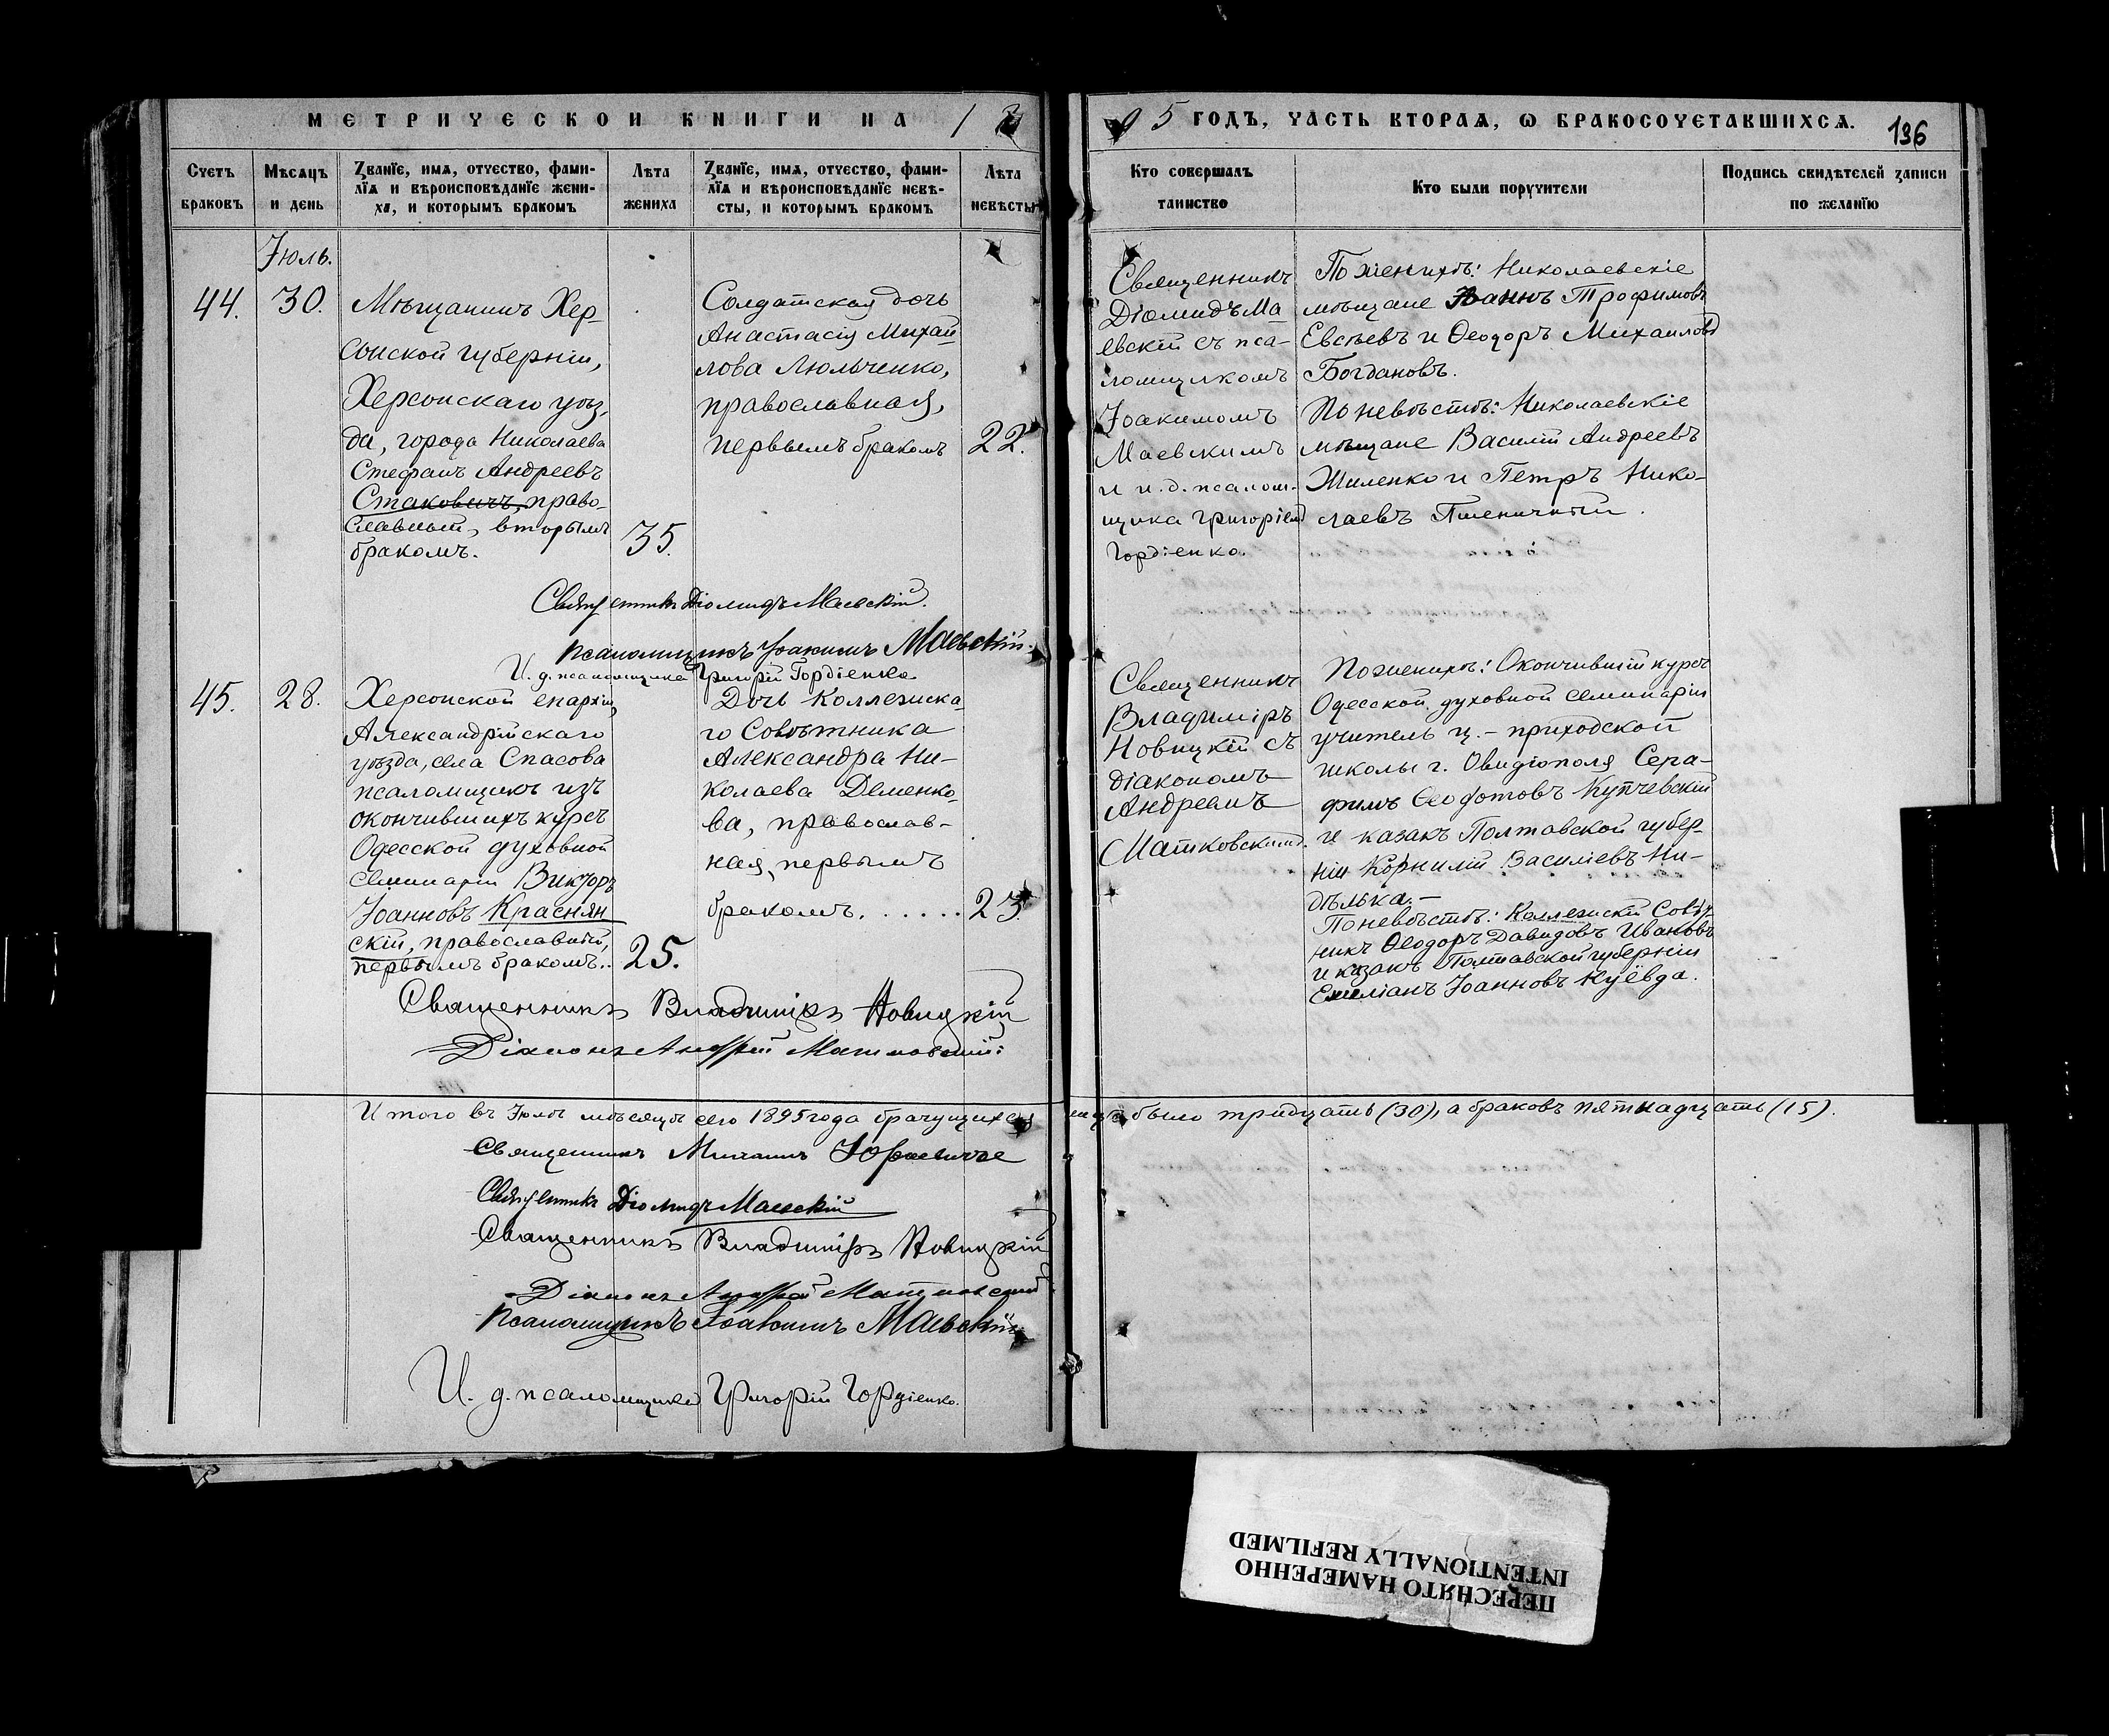 МЕТРИЧЕСКОЙ КНИГИ НА 1
95 ГОДЪ, ЧАСТЬ ВТОРАѦ, Ѡ БРАКОСОЧЕТАВШИХСѦ.
196
Счетъ браковъ
Мѣсяцъ и день
Званїе, имѧ, отчество, фами-
лїѧ и вѣроисповѣданїе жени-
ха, и которымъ бракомъ
Лѣта жениха
Званїе, имѧ, отчество, фами-
лїѧ и вѣроисповѣданїе невѣ-
сты, и которымъ бракомъ
Лѣта невѣсты
Кто совершалъ таинство
Кто были порꙋчители
Подпись свидѣтелей записи
по желанїю
Іюль.
44.
30.
Мѣщанинъ Хер-
сонской губерніи,
Херсонскаго уѣз-
да, города Николаева
Стефанъ Андреевъ
Стаковичъ, право-
славный, вторымъ
бракомъ.
35.
Солдатская дочь
Анастасія Михай
лова Люльченко,
православная,
первымъ бракомъ
22.
Священникъ
Діомидъ Ма
евскій съ пса-
ломщикомъ
Іоакимомъ
Маевскимъ
и и. д. псалом-
щика Григоріемъ
Гордіенко.
По женихѣ: Николаевскіе
мѣщане Іоаннъ Трофимовъ
Евсѣевъ и Ѳеодоръ Михаиловъ
Богдановъ.
По невѣстѣ: Николаевскіе
мѣщане Василій Андреевъ
Жиленко и Петръ Нико-
лаевъ Пшеничный.
Священникъ Діомидъ Маевскій.
Псаломщикъ Іоакимъ Маевскій.
И. д. псаломщика Григорій Гордіенко
45.
28.
Херсонской епархіи,
Александрійскаго
уѣзда, села Спасова
псаломщикъ изъ
окончившихъ курсъ
Одесской духовной
семинаріи Викторъ
Іоанновъ Краснян
скій, православный,
первымъ бракомъ..
25.
Дочь Коллежска-
го Совѣтника
Александра Ни-
колаева Деменко-
ва, православ-
ная, первымъ
бракомъ......
23.
Священникъ
Владиміръ
Новицкій съ
діакономъ
Андреемъ
Матковскимъ.
По женихѣ: Окончившій курсъ
Одесской духовной семинаріи
учитель ц.-приходской
школы г. Овидіополя Сера-
фимъ Ѳеофотовъ Купчевскій
и казакъ Полтавской губер-
ніи Корнилій Василіевъ Ни-
дѣлька.-
По невѣстѣ: Коллежскій Совѣт-
никъ Ѳеодоръ Давидовъ Ивановъ
и казакъ Полтавской губерніи
Емиліанъ Іоанновъ Куёвда.
Священникъ Владиміръ Новицкій
Діаконъ Андрей Матковскій:
Итого въ Іюлѣ мѣсяцѣ сего 1895 года брачущихся
было тридцать (30), а браковъ пятнадцать (15).
Священникъ Михаилъ Юркевичъ
Священникъ Діомидъ Маевскій
Священникъ Владиміръ Новицкій
Діаконъ Андрей Матковскій
Псаломщикъ Іоакимъ Маевскій.
И. д. псаломщика Григорій Гордіенко.
ПЕРЕСНЯТО НАМЕРЕННО
INTENTIONALLY REFILMED